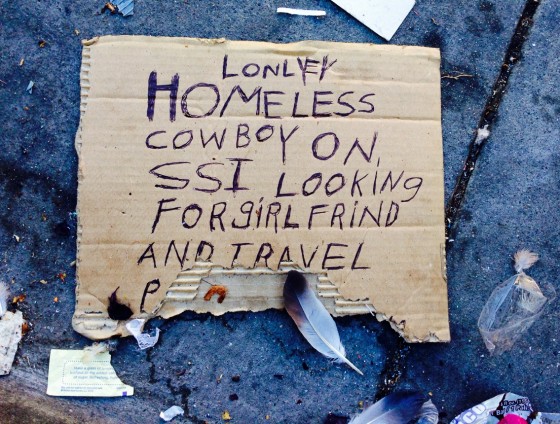 LONLEY
HOMELESS
COWBOY ON
SSI LOOKING
FOR GIRLFRIND
AND TRAVEL
P